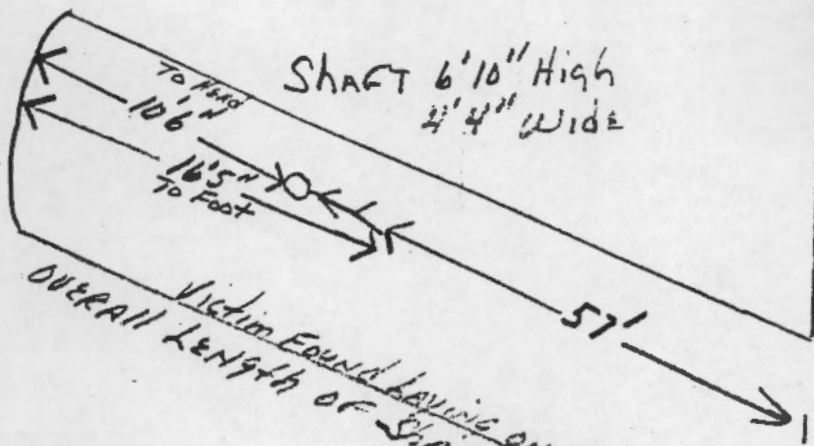 Shaft 6'10" High
4'4" Wide
To Head
10'6"
16'5"
To Foot
57'
Victim Found Laying on
Overall Length of